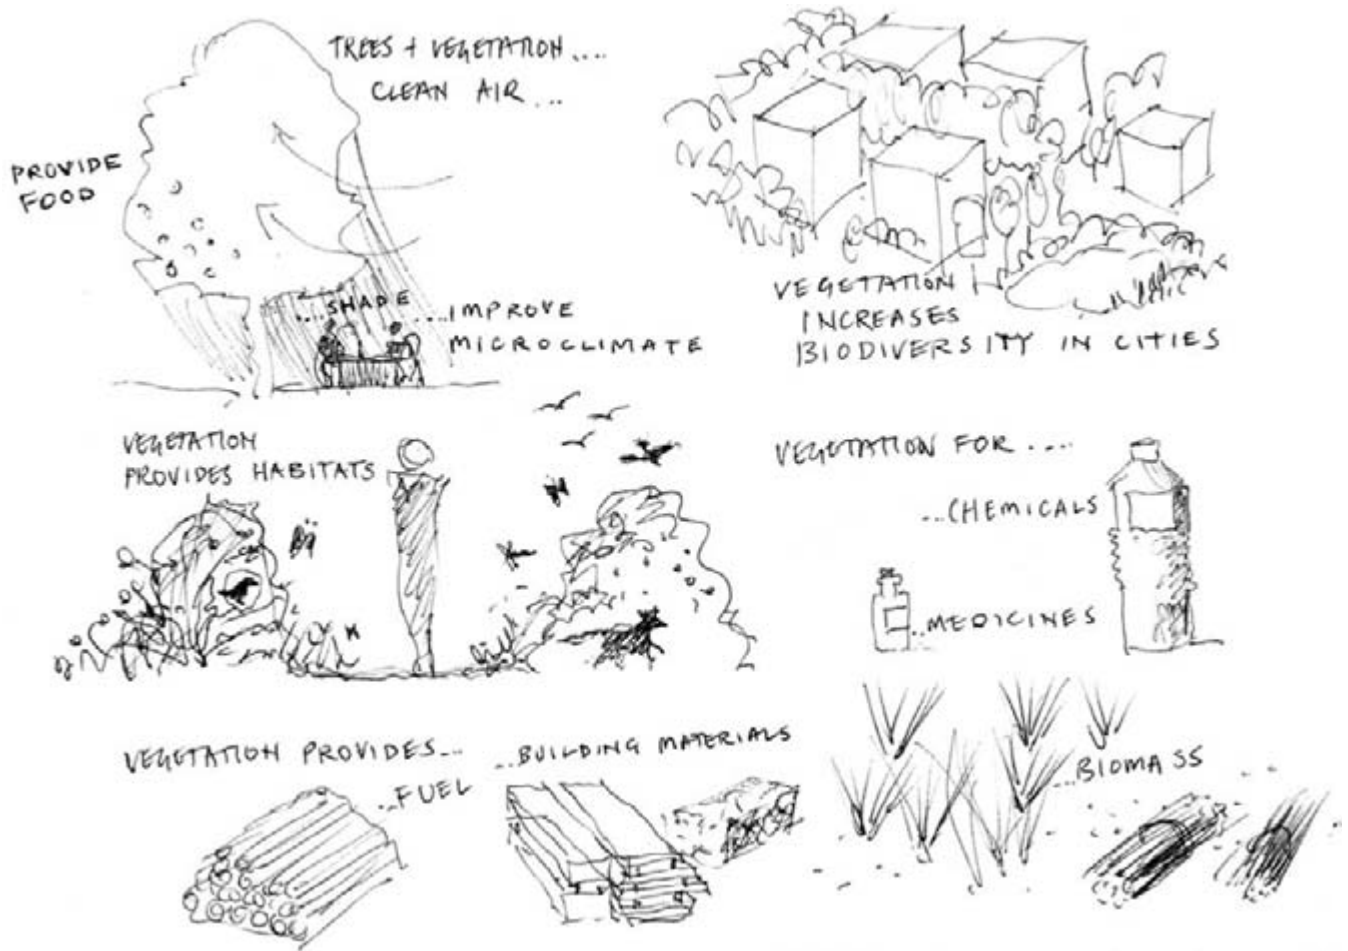 TREES + VEGETATION....
CLEAN AIR...
PROVIDE
FOOD
....SHADE....IMPROVE
MICROCLIMATE
VEGETATION
INCREASES
BIODIVERSITY IN CITIES
VEGETATION
PROVIDES HABITATS
VEGETATION FOR....
...CHEMICALS
...MEDICINES
VEGETATION PROVIDES...
...FUEL
...BUILDING MATERIALS
...BIOMASS